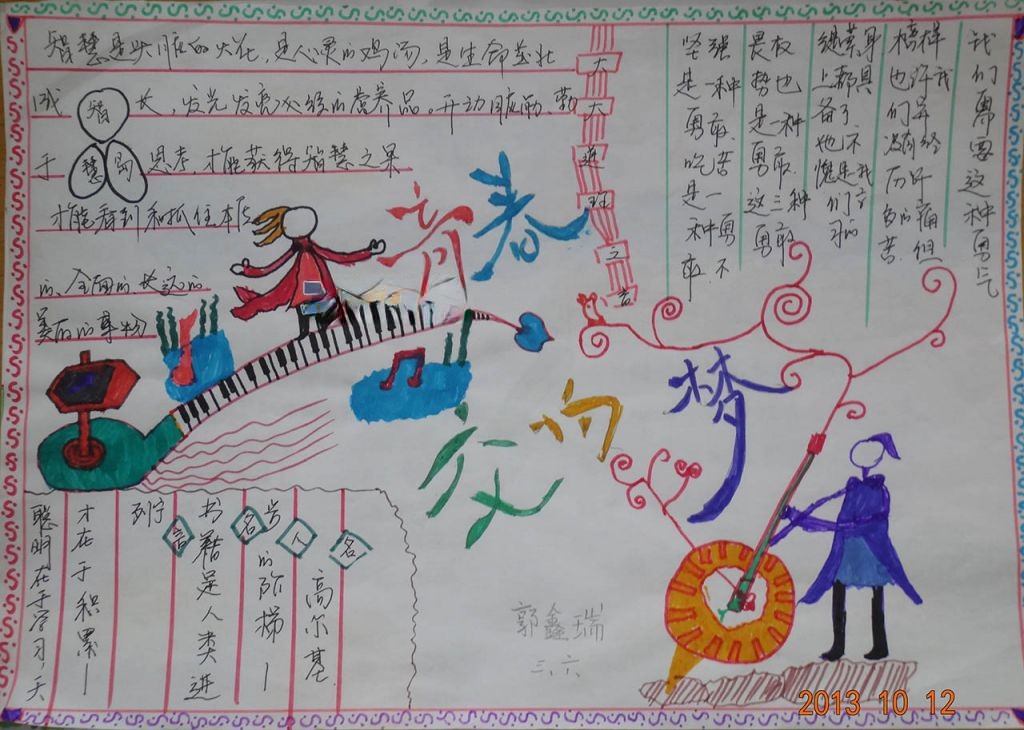 智慧是头脑的火花,是心灵的鸡汤,是生命茁壮
成长,发光发亮必须的营养品。开动脑筋,勤
于思考,才能获得智慧之果
智慧岛
才能看到和抓住本质
的、全面的、长远的
美丽的事物
青春
放飞
向
梦
大
大
进
班
之
言
我们需要这种勇气
榜样
也许我
们并
没有经
历
的痛
苦.但
继宗身
上都具
备了.
他不
愧是我
们学
习的
畏权
势也
是一种
勇敢.
这三种
勇敢
坚强
是一种
勇敢.
吃苦
是一
种勇
敢.不
名人名言
高尔基
书籍是人类进
步的阶梯—
列宁
才在于积累—
聪明在于学习,天
郭鑫瑞
三、六
2013 10 12